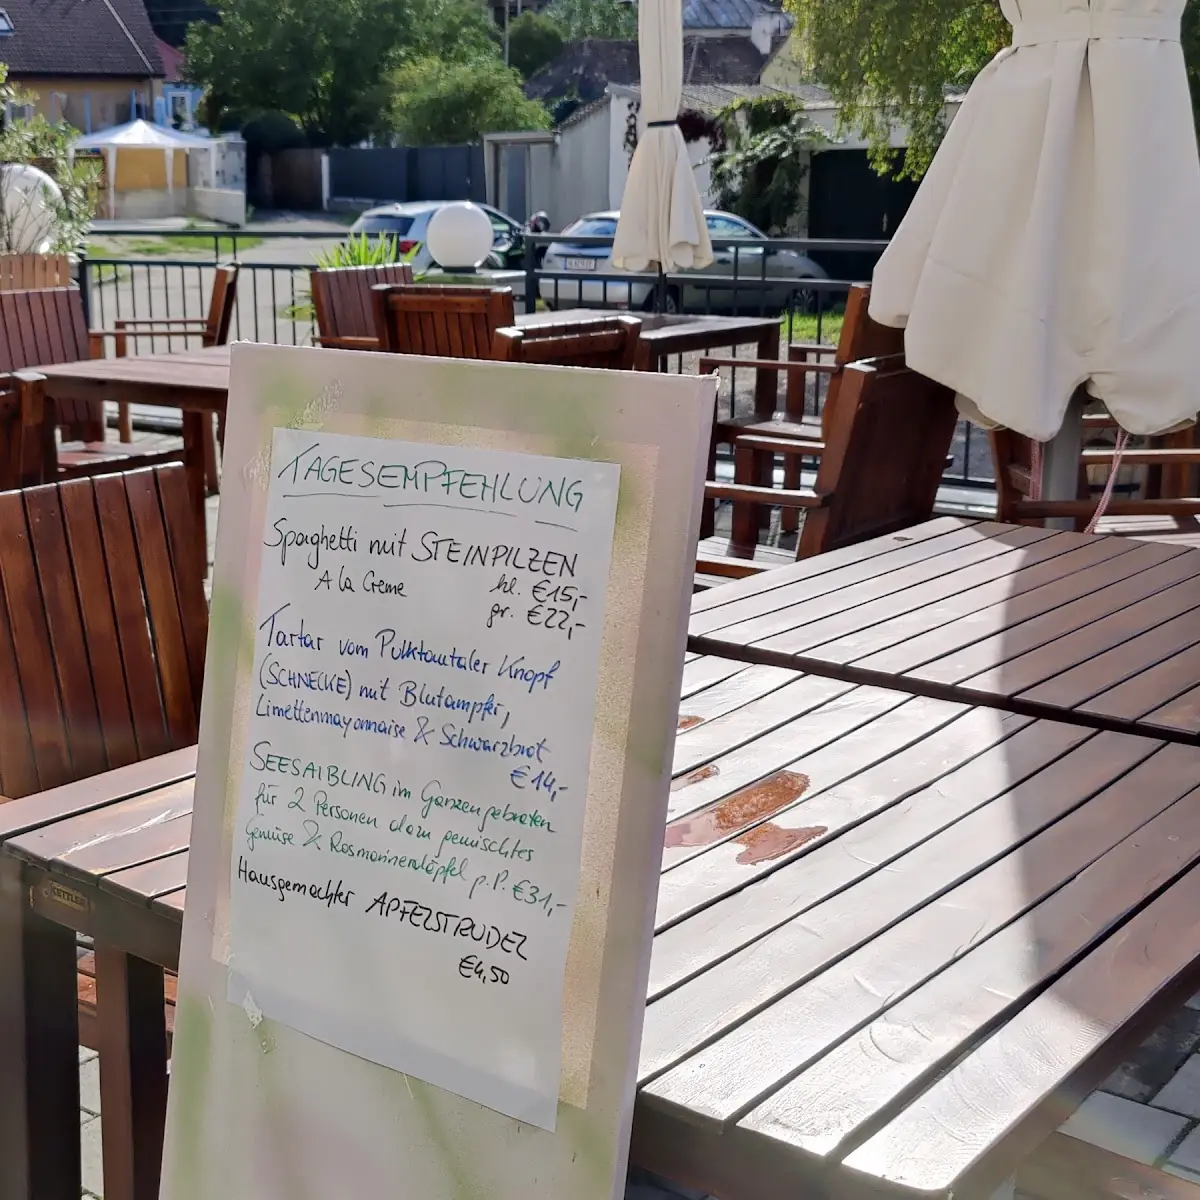 TAGESEMPFEHLUNG
Spaghetti mit STEINPILZEN
A la Creme kl. €15,-
gr. €22,-
Tartar vom Pulktautaler Knopf
(SCHNECKE) mit Blutampfer,
Limettenmayonnaise & Schwarzbrot
€14,-
SEESAIBLING im Ganzen gebraten
für 2 Personen dazu gemischtes
Gemüse & Rosmarinerdäpfel p.P. €31,-
Hausgemachter APFELSTRUDEL
€4,50
KETTLER